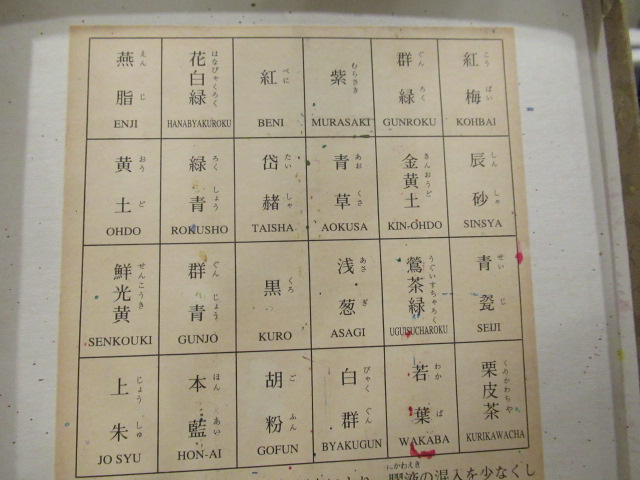 燕脂 えんじ ENJI
花白緑 はなびゃくろく HANABYAKUROKU
紅 べに BENI
紫 むらさき MURASAKI
群緑 ぐんろく GUNROKU
紅梅 こうばい KOHBAI
黄土 おうど OHDO
緑青 ろくしょう ROKUSHO
岱赭 たいしゃ TAISHA
青草 あおくさ AOKUSA
金黄土 きんおうど KIN-OHDO
辰砂 しんしゃ SINSYA
鮮光黄 せんこうき SENKOUKI
群青 ぐんじょう GUNJO
黒 くろ KURO
浅葱 あさぎ ASAGI
鶯茶緑 うぐいすちゃろく UGUISUCHAROKU
青瓷 せいじ SEIJI
上朱 じょうしゅ JO SYU
本藍 ほんあい HON-AI
胡粉 ごふん GOFUN
白群 びゃくぐん BYAKUGUN
若葉 わかば WAKABA
栗皮茶 くりかわちゃ KURIKAWACHA
膠液の混入を少なくし にかわえき